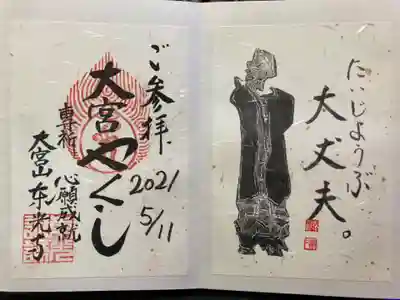 だいじょうぶ
大丈夫。
ご参拝
2021
5/11
大宮やくし
心願成就
大宮山東光寺